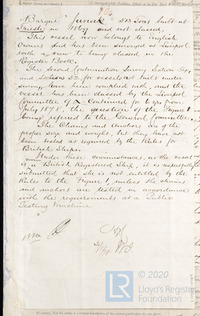 Barque "Jarick" 512 Tons built at
Trieste in 1867 and not classed,
This vessel now belongs to English
Owners and has been surveyed in Liverpool
with a view to being classed in the
Register Book.
The Second Continuation Survey Section
and Section 52 for vessels not built under
survey have been complied with, and the
vessel has been classed by the Liverpool
Committee A Continued for 6 years from
July 1877, the question of the Figure 1
being referred to the General Committee.
The Chains and Anchors are of the
proper size and weight, but they have not
been tested as required by the Rules for
British Ships.
Under these circumstances, as the vessel
is a British Registered Ship, it is respectfully
submitted that she is not entitled by the
Rules to the Figure 1, unless the chains
and anchors are tested in accordance
with the requirements at a Public
Testing Machine.
© 2020
Lloyd's Register
Foundation